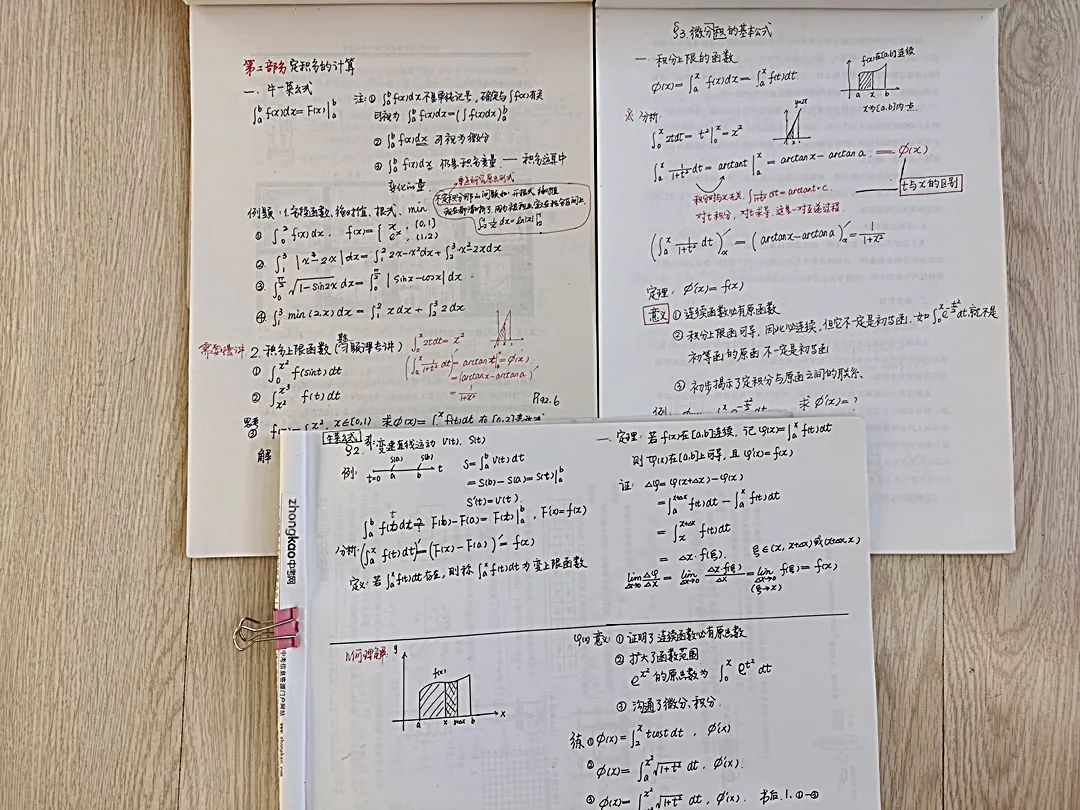 第二部分 定积分的计算
一. 牛一莱公式
∫_a^b f(x)dx = F(x)|_a^b
注: ① ∫_a^b f(x)dx 不是单纯记号, 确定与∫f(x)有关
可视为 ∫_a^b f(x)dx = (∫f(x)dx)_a^b
② ∫_a^b f(x)dx 可视为微分
③ ∫_a^b f(x)dx 仍是积分变量 —— 积分运算中
变化的量
例题: 1. 分段函数, 绝对值, 根式, min
① ∫_0^2 f(x)dx, f(x)={ x, (0,1)
e^x, (1,2)
② ∫_1^3 |x²-2x|dx = ∫_1^2 2x-x²dx + ∫_2^3 x²-2xdx
③ ∫_0^{π/2} √(1-sin2x) dx = ∫_0^{π/2} |sinx-cosx|dx.
④ ∫_1^3 min(2,x)dx = ∫_1^2 xdx + ∫_2^3 2dx
需要慢讲 2. 积分上限函数 (习题课专讲)
∫_0^x 2tdt = x²
(∫_a^x 1/(1+t²) dt)' = arctant|_a^x = Φ(x)
=(arctanx-arctana)'
= 1/(1+x²)
① ∫_0^{x²} f(sint)dt
② ∫_{x²}^{x³} f(t)dt
P192.6
思考
解
§3. 微分积的基本公式
一. 积分上限的函数
Φ(x) = ∫_a^x f(x)dx = ∫_a^x f(t)dt.
f(x)在[a,b]连续
a x b
x为[a,b]内点.
※ 分析:
∫_0^x 2tdt = t²|_0^x = x²
y=2x
∫_a^x 1/(1+t²) dt = arctant|_a^x = arctanx - arctana. == Φ(x)
积分时与x无关. ∫1/(1+t²) dt = arctant+c.
t与x的区别
对t积分, 对t求导, 这是一对互逆过程.
(∫_a^x 1/(1+t²) dt)'_x = (arctanx-arctana)'_x = 1/(1+x²)
定理: Φ'(x) = f(x)
意义 ① 连续函数必有原函数
② 积分上限函可导, 因此必连续, 但它不一定是初等函. 如∫_0^x e^{-t²/2}dt. 就不是
初等函的原函 不一定是初等函
③ 初步揭示了定积分与原函之间的联系.
求Φ'(x)=?
牛莱公式
§2. 非: 变速直线运动 v(t), s(t)
例:
s(a) s(b)
t=0 a b t
S=∫_a^b v(t)dt
= S(b)-S(a) = S(t)|_a^b
S'(t)=v(t).
∫_a^b f(t)dt = F(b)-F(a) = F(t)|_a^b, F'(x)=f(x)
分析: (∫_a^x f(t)dt)' = (F(x)-F(a))' = f(x)
定义: 若∫_a^x f(t)dt存在, 则称∫_a^x f(t)dt为变上限函数
一. 定理: 若f(x)在[a,b]连续, 记φ(x)=∫_a^x f(t)dt
则φ(x)在[a,b]上可导, 且φ'(x)=f(x)
证: Δφ=φ(x+Δx)-φ(x)
=∫_a^{x+Δx} f(t)dt - ∫_a^x f(t)dt
=∫_x^{x+Δx} f(t)dt
= Δx·f(ξ). ξ∈(x, x+Δx)或(x+Δx,x)
lim_{Δx→0} Δφ/Δx = lim_{Δx→0} Δx·f(ξ)/Δx = lim_{Δx→0 (ξ→x)} f(ξ) = f(x)
几何理解:
y
f(x)
a x x+Δx b x
φ(x) 意义: ① 证明了连续函数必有原函数
② 扩大了函数范围
e^{x²}的原函数为 ∫_0^x e^{t²}dt
③ 沟通了微分、积分.
练 ① Φ(x)=∫_2^x tcost dt, Φ'(x)
② Φ(x)=∫_a^{x²} √(1+t²) dt, Φ'(x).
③ Φ(x)=∫^{x²} √(1+t²) dt, Φ'(x). 书后.1.①-③
zhongkao中考网
中考信息资源门户网站 www.zhongkao.com